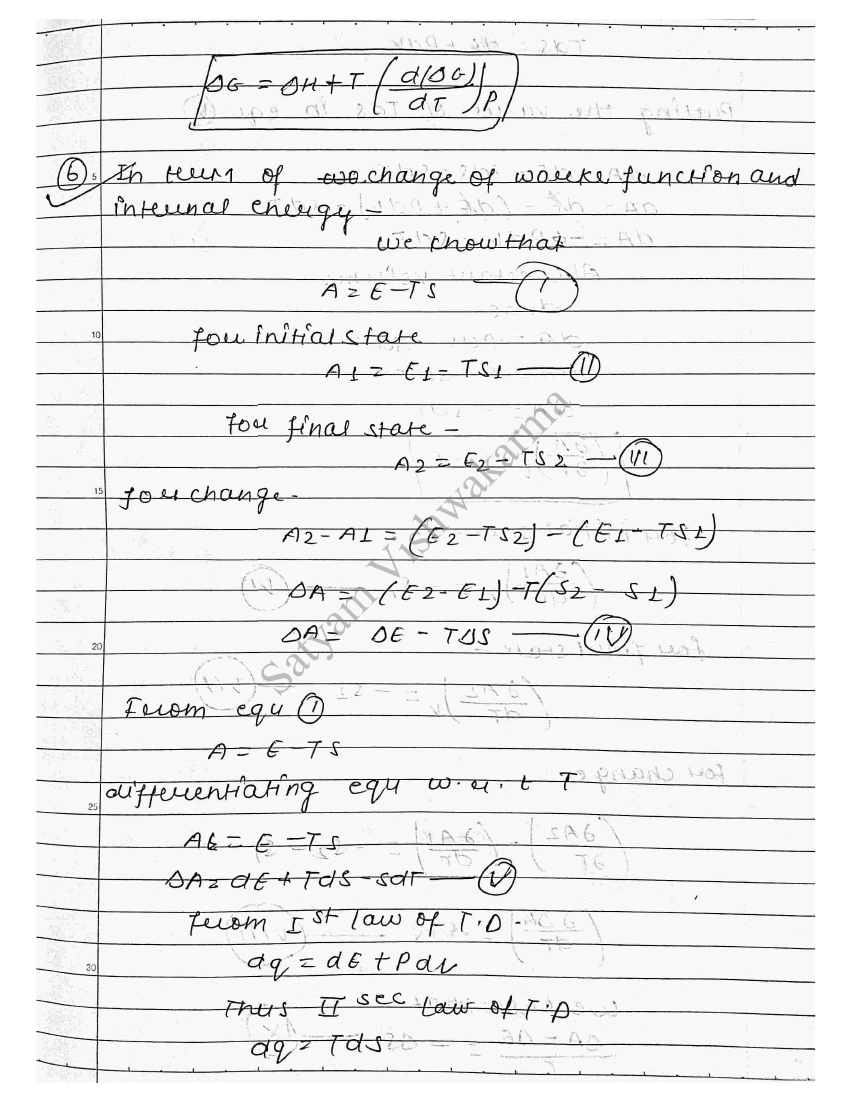 ΔG = ΔH + T (d(ΔG)/dT)P
6 In term of change of worke function and
internal energy -
we know that
A = E - TS — I
for initial state
A1 = E1 - TS1 — II
for final state -
A2 = E2 - TS2 — III
for change -
A2 - A1 = (E2 - TS2) - (E1 - TS1)
ΔA = (E2 - E1) - T(S2 - S1)
ΔA = ΔE - TΔS — IV
From equ I
A = E - TS
differentiating equ w.r.t T
A = E - TS
ΔA = dE + TdS - SdT — V
from Ist law of T.D -
dq = dE + Pdv
Thus II sec law of T.D
dq = TdS
5
10
15
20
25
30
Satyam Vishwakarma